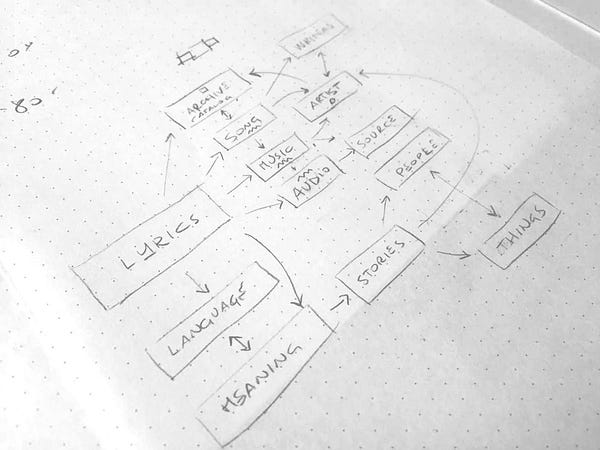 ARCHIVE
CATALOG
ARTIST
SONG
MUSIC
SOURCE
AUDIO
PEOPLE
LYRICS
THINGS
STORIES
LANGUAGE
MEANING